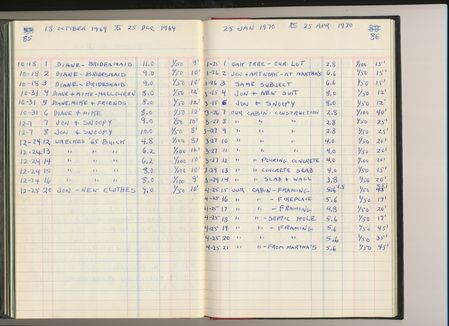 18 OCTOBER 1969 to 25 DEC 1969
85
10-18 1 DIANE-BRIDESMAID 11.0 1/50 9'
10-18 2 DIANE-BRIDESMAID 9.0 1/50 10'
10-18 3 DIANE-BRIDESMAID 9.0 1/50 10'
10-31 4 DIANE+MIKE-HALLOWEEN 8.0 1/50 12'
10-31 5 DIANE, MIKE + FRIENDS 8.0 1/50 12'
10-31 6 DIANE + MIKE 8.0 1/50 12'
12-7 7 JON & SNOOPY 9.0 10'
12-7 8 JON & SNOOPY 10.0 1/50 9'
12-24 12 WRECKED '65 BUICK 4.8 1/100
12-24 13 " " " 6.2 1/100 10'
12-24 14 " " " 6.2 1/100 10'
12-24 15 " " " 8.0 1/50
12-24 16 " " " 8.0 1/100 9'
12-25 20 JON-NEW CLOTHES 9.0 1/50 10'
25 JAN 1970 to 25 APR 1970
86
1-25 1 OAK TREE - OUR LOT 2.8 1/100 15'
1-26 2 JON + ANTHONY - AT MARTHA'S 6.6 1/50 15'
1-26 3 SAME SUBJECT 6.6 1/50 15'
3-15 4 JON + NEW SUIT 8.0 1/50 12'
3-15 6 JON & SNOOPY 8.0 1/50 12'
3-26 7 OUR CABIN-CONSTRUCTION 2.8 1/100 40'
3-27 8 " " " 2.8 1/50 25'
3-27 9 " " " 2.8 1/50 25'
3-27 10 " " " 4.0 1/50 20'
3-27 12 " " - POURING CONCRETE 4.0 1/50 20'
3-29 13 " " CONCRETE SLAB 4.0 1/50 15'
3-29 14 " " SLAB & WALL 3.8 1/50 20'
4-25 15 OUR CABIN-FRAMING 5.6 2.8 1/50
4-25 16 " " - FIREPLACE 5.6 1/50 17'
4-25 17 " " - FRAMING 4.8 1/50 20'
4-25 18 " " - SEPTIC HOLE 5.6 1/50 17'
4-25 19 " " - FRAMING 5.6 1/50 45'
4-25 20 " " " 5.6 1/50 35'
4-25 21 " " - FROM MARTHA'S 5.6 1/50 45'